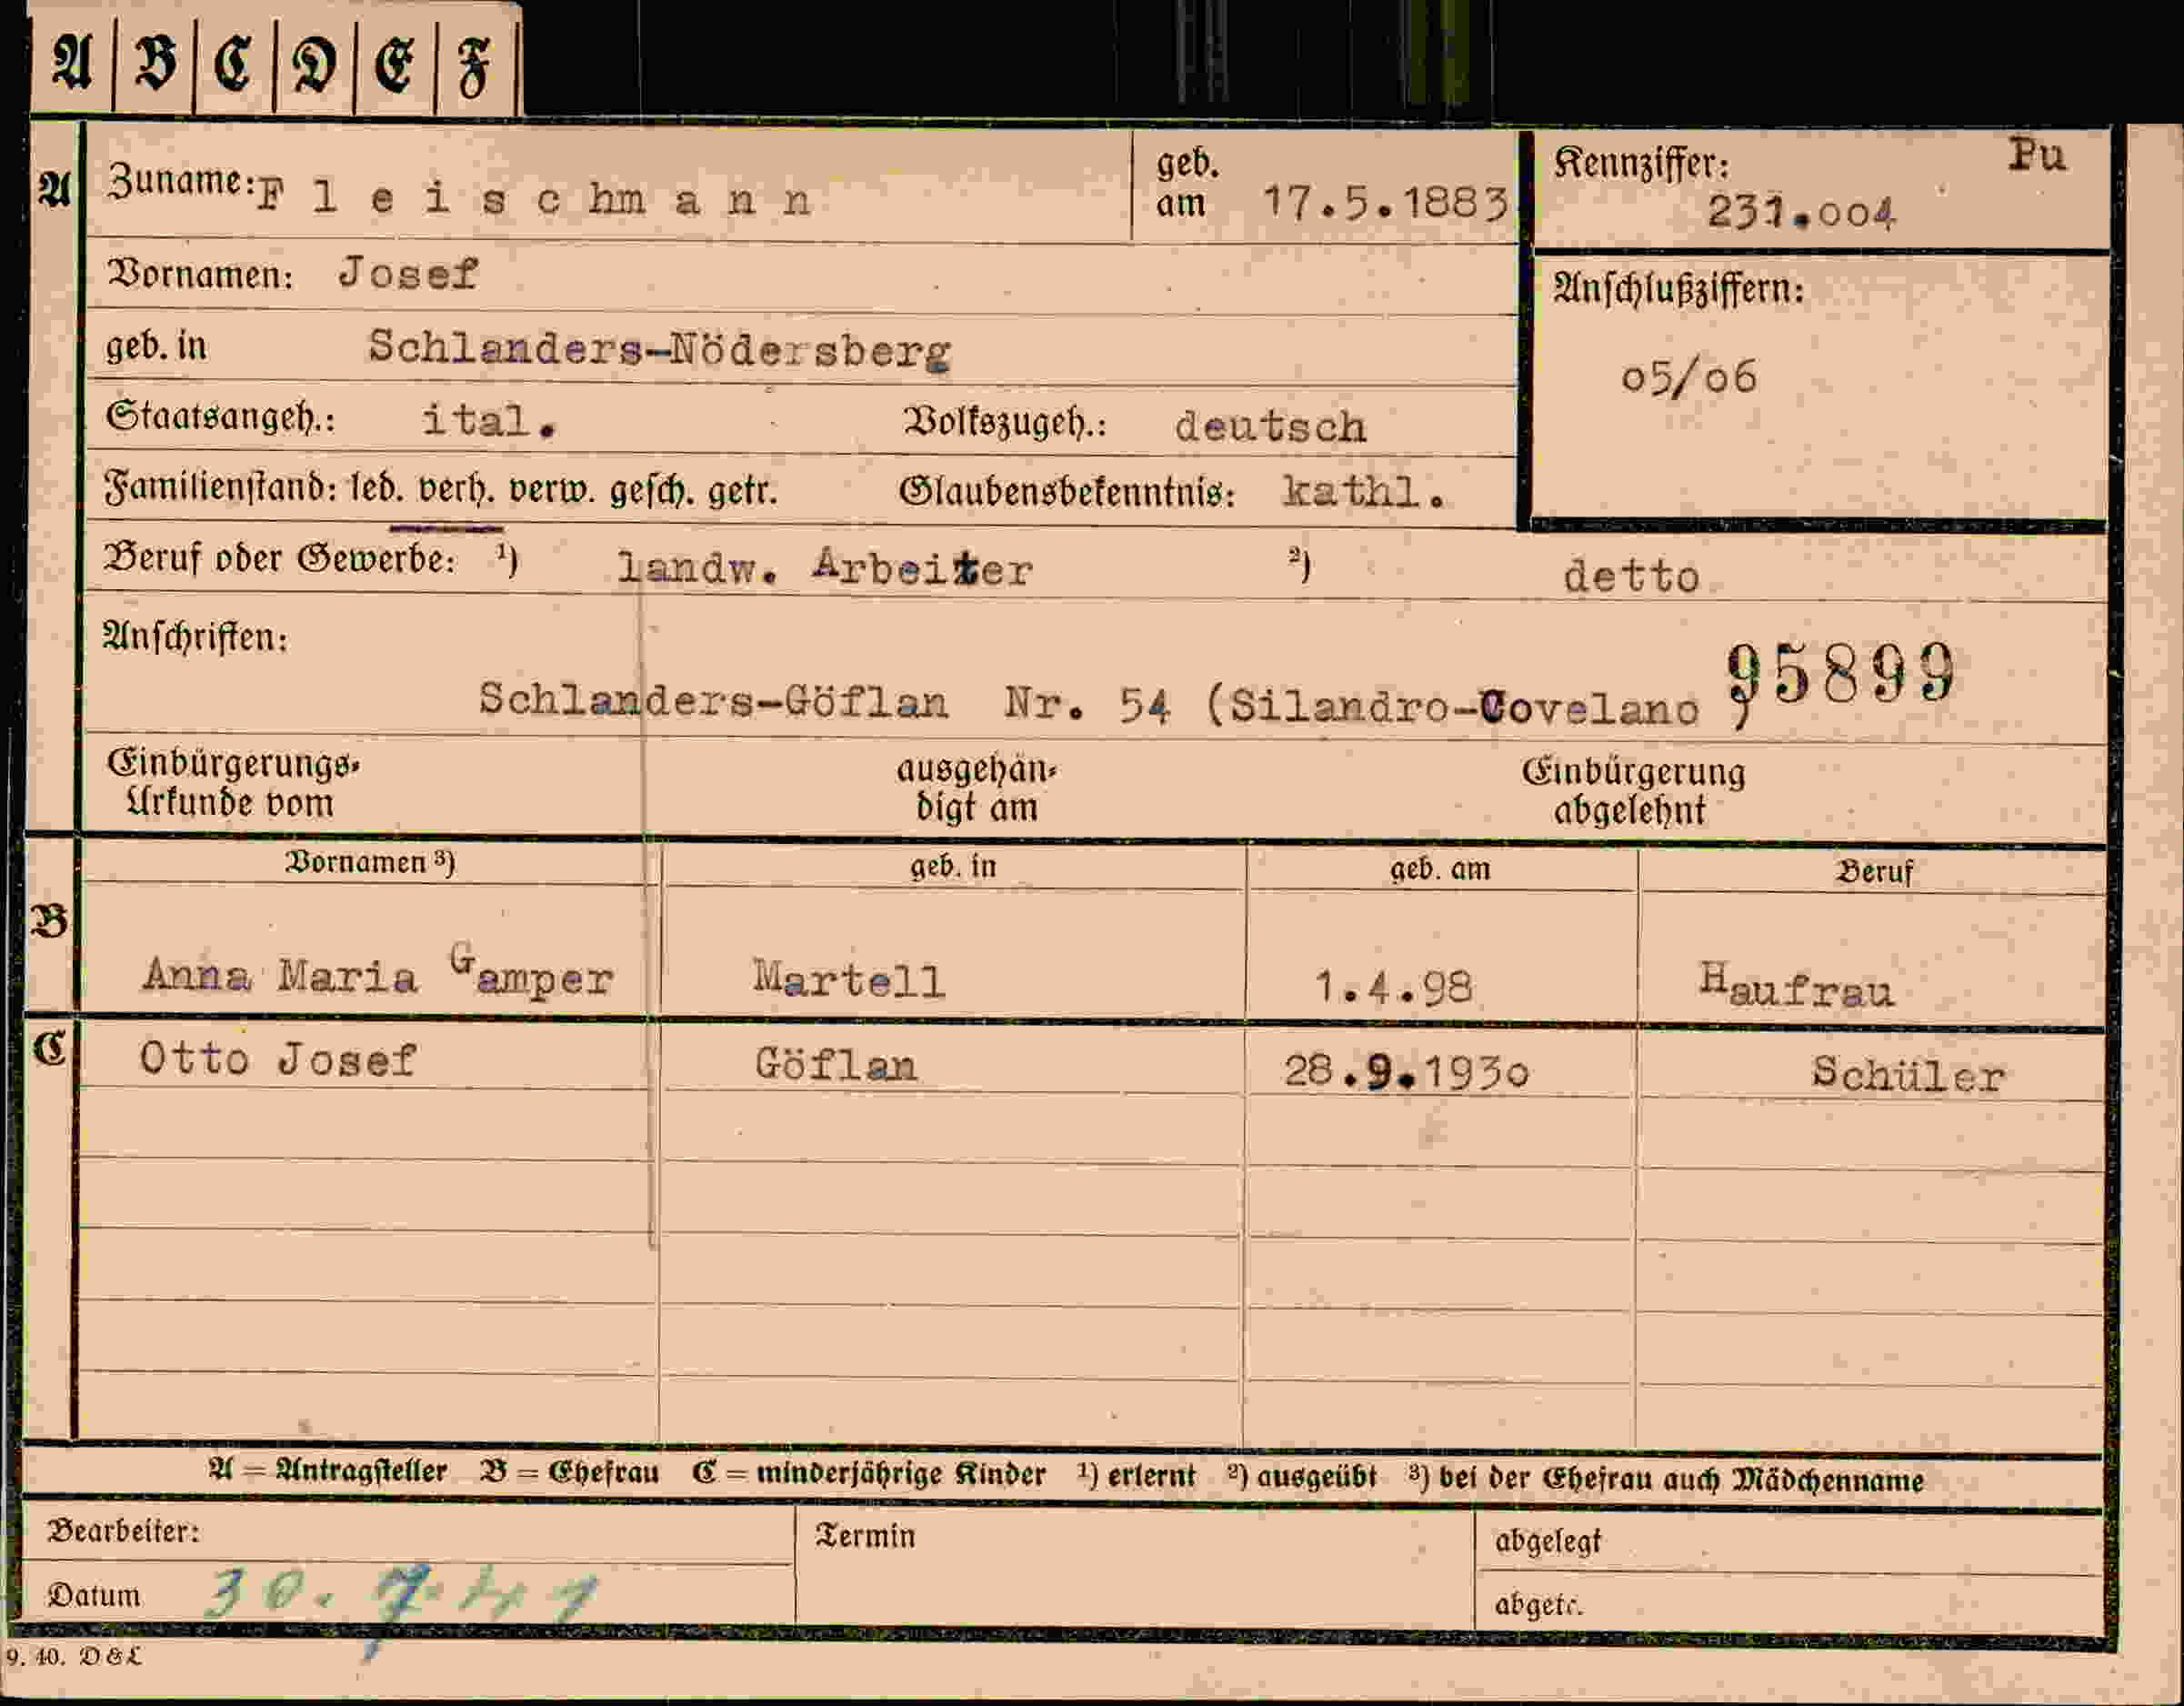 A B C D E F
A Zuname: Fleischmann geb. am 17.5.1883 Kennziffer: 231.004 Pu
Vornamen: Josef Anschlußziffern:
geb. in Schlanders-Nödersberg 05/06
Staatsangeh.: ital. Volkszugeh.: deutsch
Familienstand: led. verh. verw. gesch. getr. Glaubensbekenntnis: kathl.
Beruf oder Gewerbe: 1) landw. Arbeiter 2) detto
Anschriften: 95899
Schlanders-Göflan Nr. 54 (Silandro-Covelano )
Einbürgerungs- ausgehän- Einbürgerung
Urkunde vom digt am abgelehnt
Vornamen 3) geb. in geb. am Beruf
B Anna Maria Gamper Martell 1.4.98 Haufrau
C Otto Josef Göflan 28.9.1930 Schüler
A = Antragsteller B = Ehefrau C = minderjährige Kinder 1) erlernt 2) ausgeübt 3) bei der Ehefrau auch Mädchenname
Bearbeiter: Termin abgelegt
Datum 30. 7. 41 abgetr.
9. 40. D&L